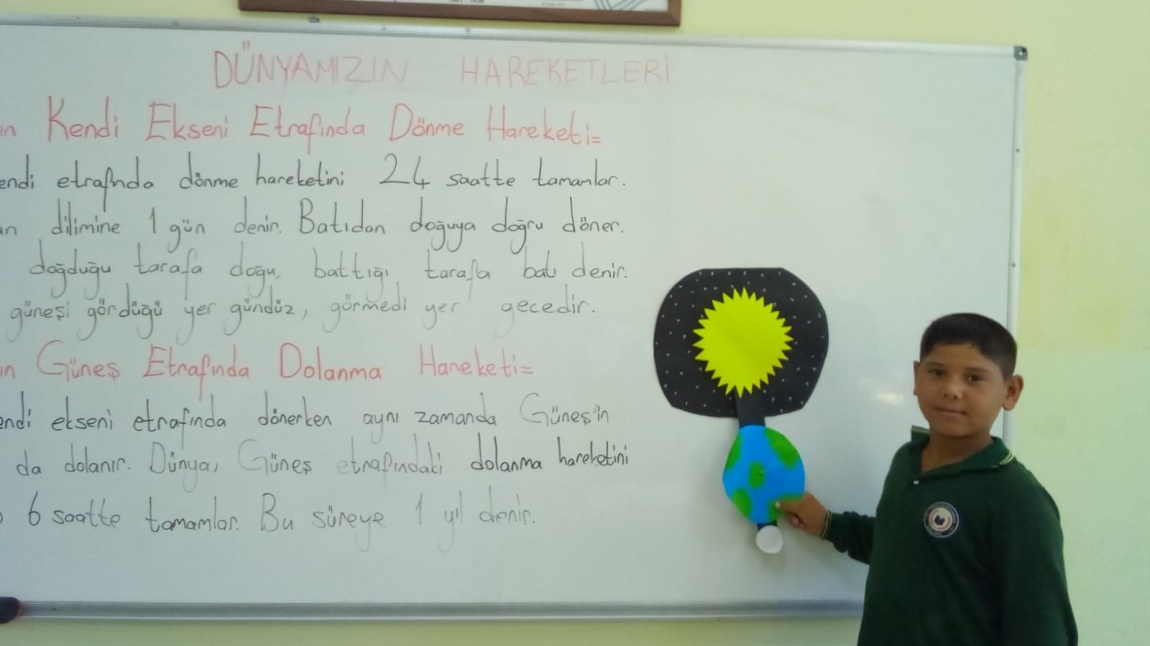 DÜNYAMIZIN HAREKETLERİ
ın Kendi Ekseni Etrafında Dönme Hareketi=
endi etrafında dönme hareketini 24 saatte tamamlar.
an dilimine 1 gün denir. Batıdan doğuya doğru döner.
doğduğu tarafa doğu, battığı tarafa batı denir.
güneşi gördüğü yer gündüz, görmedi yer gecedir.
ın Güneş Etrafında Dolanma Hareketi=
endi ekseni etrafında dönerken aynı zamanda Güneş'in
da dolanır. Dünya, Güneş etrafındaki dolanma hareketini
6 saatte tamamlar. Bu süreye 1 yıl denir.